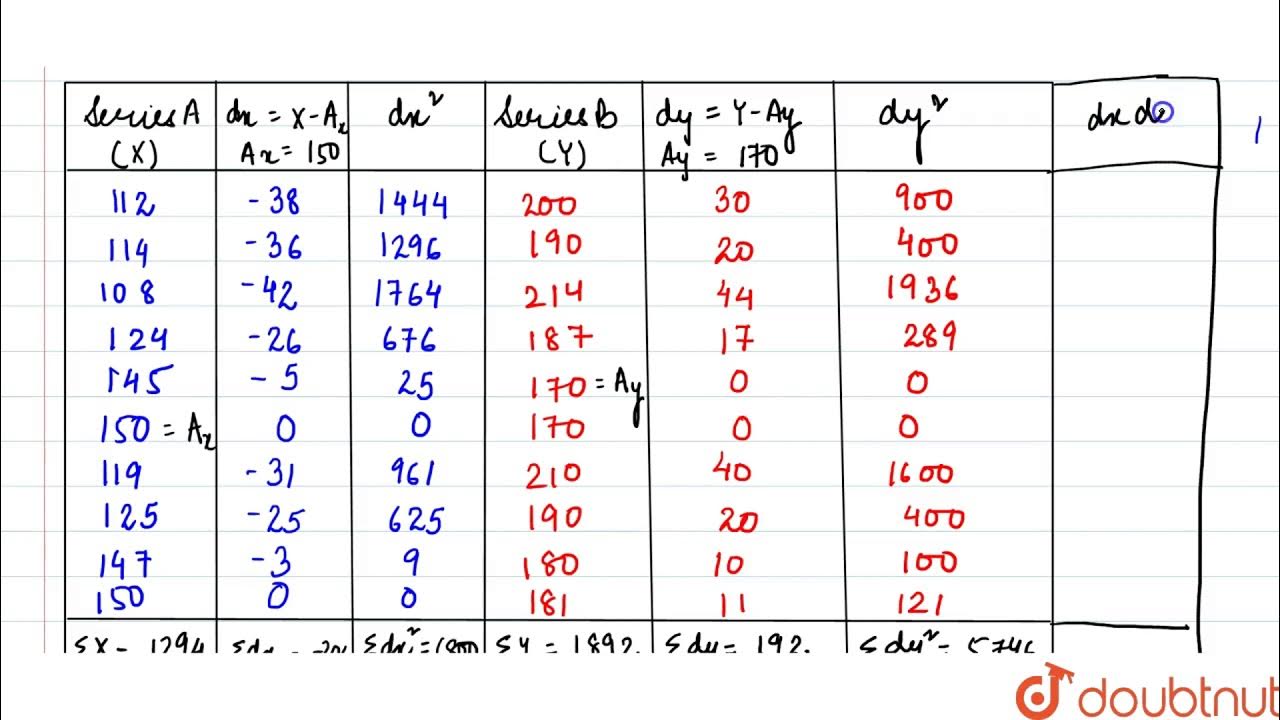 Series A dx = X-Ax dx² Series B dy = Y-Ay dy² dx d
(X) Ax = 150 (Y) Ay = 170
112 -38 1444 200 30 900
114 -36 1296 190 20 400
108 -42 1764 214 44 1936
124 -26 676 187 17 289
145 -5 25 170 = Ay 0 0
150 = Ax 0 0 170 0 0
119 -31 961 210 40 1600
125 -25 625 190 20 400
147 -3 9 180 10 100
150 0 0 181 11 121
ΣX = 1294 Σdx Σdx² = ΣY = 1892 Σdy = 192 Σdy² = 5746
doubtnut